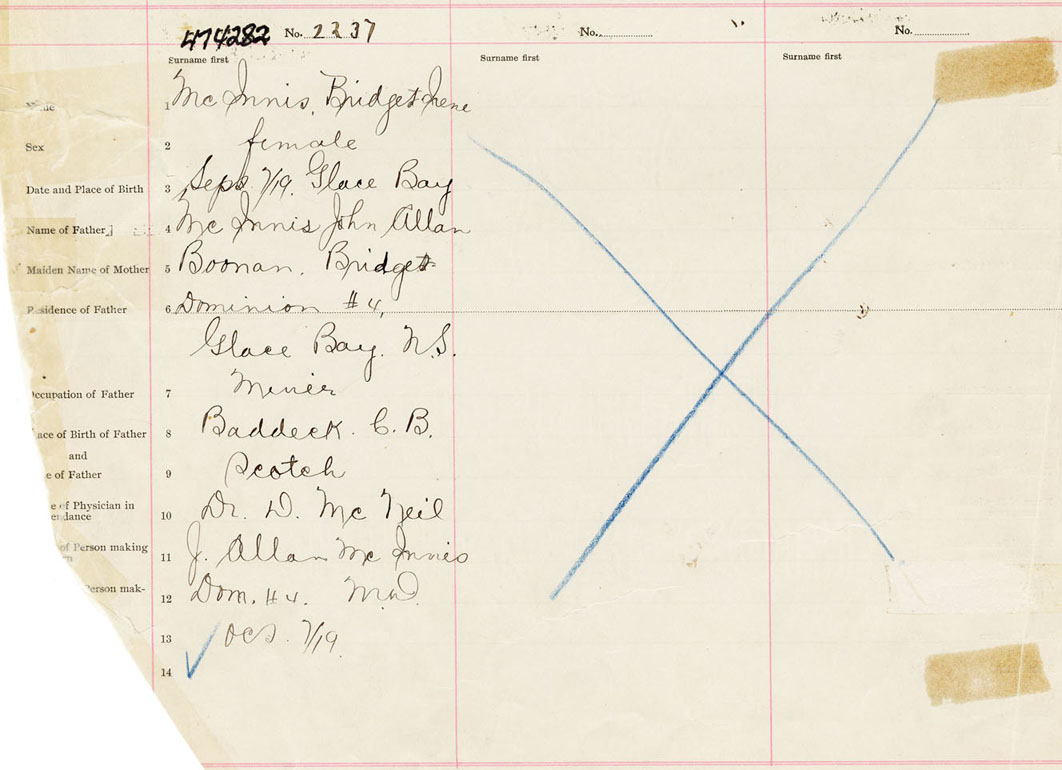 474282 No. 2237 No. No.
Surname first Surname first Surname first
1 Mc Innis, Bridget Irene
Sex 2 female
Date and Place of Birth 3 Sept 7/19. Glace Bay
Name of Father 4 Mc Innis John Allan
Maiden Name of Mother 5 Boonan, Bridget
Residence of Father 6 Dominion #4,
Glace Bay. N.S.
Occupation of Father 7 Miner
ace of Birth of Father 8 Baddeck. C.B.
and
e of Father 9 Scotch
e of Physician in
endance 10 Dr. D. Mc Neil
of Person making
11 J. Allan Mc Innis
Person mak-
12 Dom. #4.
13 Oct. 7/19.
14